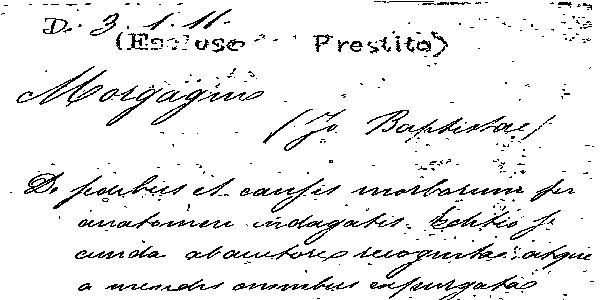 D. 3. 1. 11.
(Escluso Prestito)
Morgagni
(Jo. Baptistae)
De sedibus et causis morborum per
anatomen indagatis. Editio se
cunda ab auctore recognita: atque
a mendis omnibus expurgata